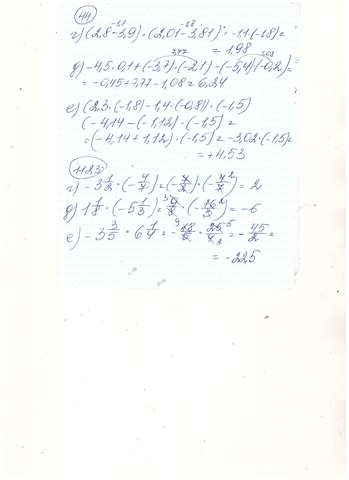 44
-1,1 -1,8
г) (2,8-3,9)·(2,01-3,81)=-1,1·(-1,8)=
= 1,98
7,77 1,08
д) -4,5·0,1+(-3,7)·(-2,1)-(-5,4)(-0,2)=
= -0,45+7,77-1,08=6,24
е) (2,3·(-1,8)-1,4·(-0,8))·(-1,5)
(-4,14-(-1,12))·(-1,5)=
=(-4,14+1,12)·(-1,5)=-3,02·(-1,5)=
=+4,53
1123
г) -3 1/2·(-4/7)=(-7/2)·(-4/7)=2
д) 1 1/8·(-5 1/3)=9/8·(-16/3)=-6
е) -3 3/5·6 1/4=-18/5·25/4=-45/2=
= -22,5